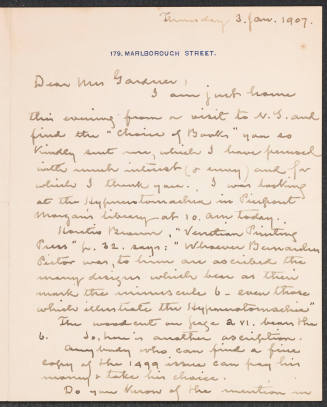 Thursday 3. Jan. 1907.
179. MARLBOROUGH STREET.
Dear Mrs Gardner,
I am just home
this evening from a visit to N.Y. and
find the "Choice of Books" you so
kindly sent me, which I have perused
with much interest (& envy) and for
which I thank you. I was looking
at the Hypnerotomachia in Pierpont
Morgan's library at 10. am today.
Horatio Brown, "Venetian Printing
Press" p. 32. says: "Whoever Bernardin
Pictor was, to him are ascribed the
many designs which bear as their
mark the minuscule b - even those
which illustrate the Hypnerotomachia"
The woodcut on page a vi. bears the
b. So, here is another ascription.
Anybody who can find a fine
copy of the 1499 issue can pay his
money & take his choice.
Do you know of the mention in